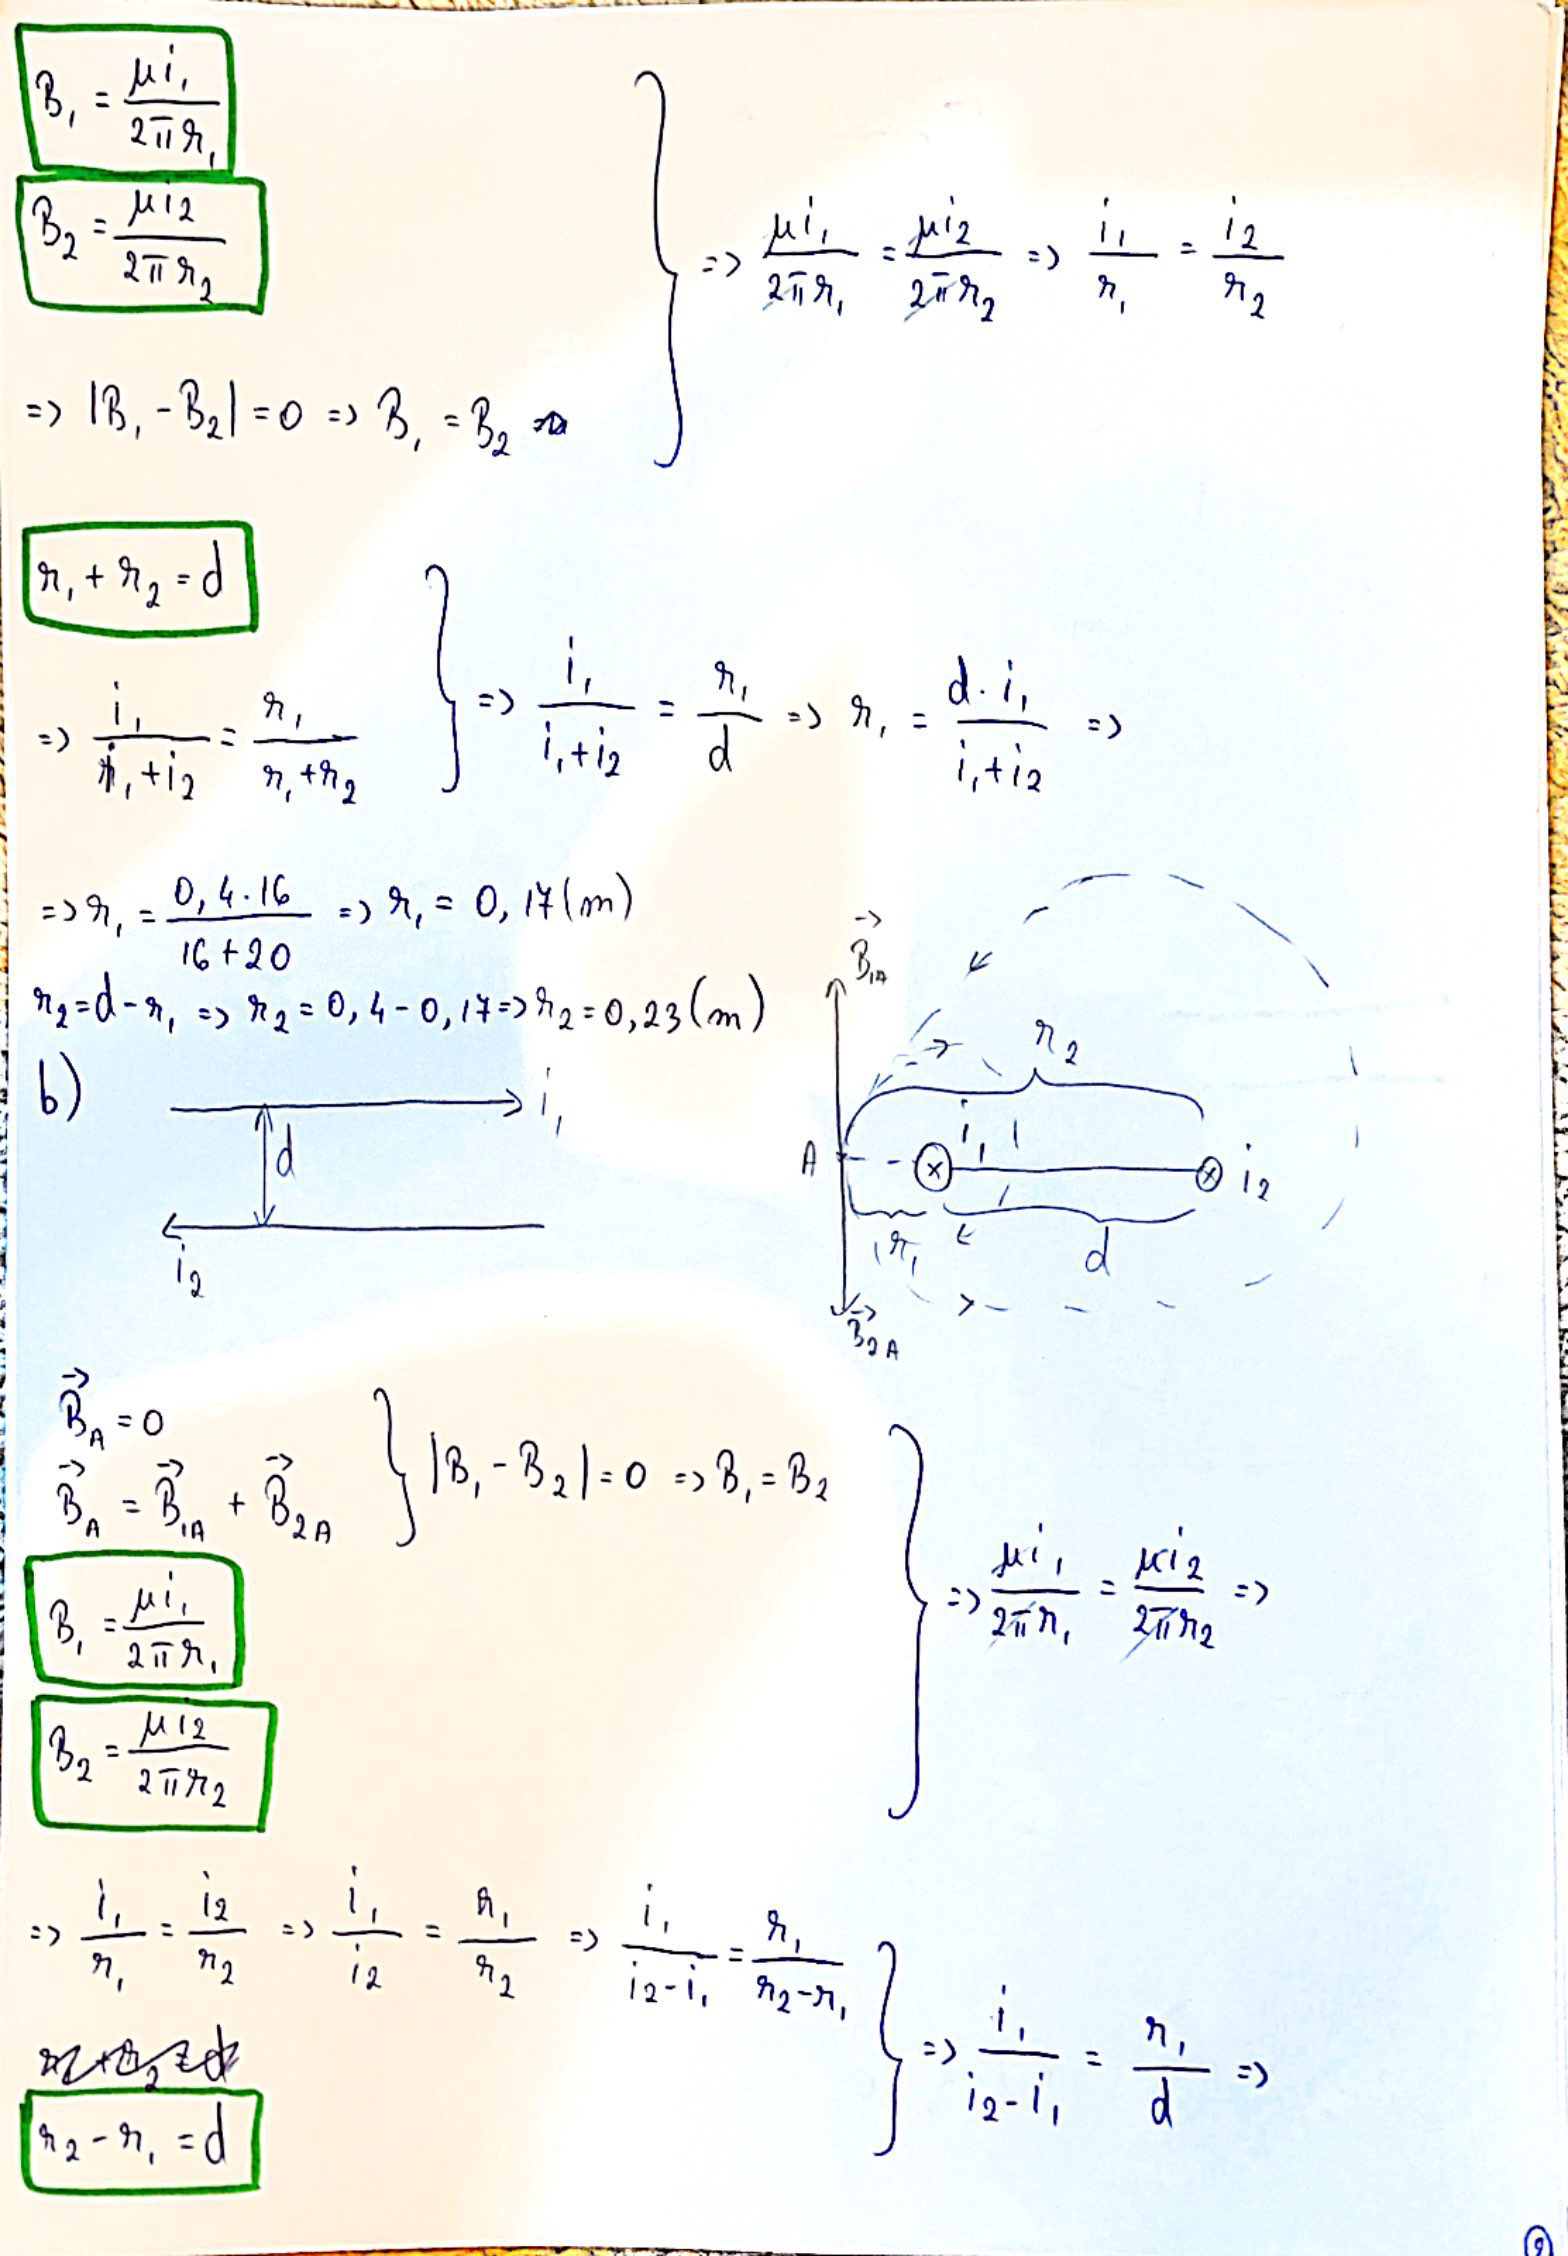 B₁ = μi₁ / 2πr₁
B₂ = μi₂ / 2πr₂
=> μi₁ / 2πr₁ = μi₂ / 2πr₂ => i₁ / r₁ = i₂ / r₂
=> |B₁ - B₂| = 0 => B₁ = B₂
r₁ + r₂ = d
=> i₁ / i₁ + i₂ = r₁ / r₁ + r₂
=> i₁ / i₁ + i₂ = r₁ / d => r₁ = d · i₁ / i₁ + i₂ =>
=> r₁ = 0,4 · 16 / 16 + 20 => r₁ = 0,17 (m)
r₂ = d - r₁ => r₂ = 0,4 - 0,17 => r₂ = 0,23 (m)
b)
i₁
d
i₂
B⃗₁A
r₂
A
i₁
i₂
r₁
d
B⃗₂A
B⃗A = 0
B⃗A = B⃗₁A + B⃗₂A
|B₁ - B₂| = 0 => B₁ = B₂
B₁ = μi₁ / 2πr₁
B₂ = μi₂ / 2πr₂
=> μi₁ / 2πr₁ = μi₂ / 2πr₂ =>
=> i₁ / r₁ = i₂ / r₂ => i₁ / i₂ = r₁ / r₂ => i₁ / i₂ - i₁ = r₁ / r₂ - r₁
r₂ - r₁ = d
=> i₁ / i₂ - i₁ = r₁ / d =>